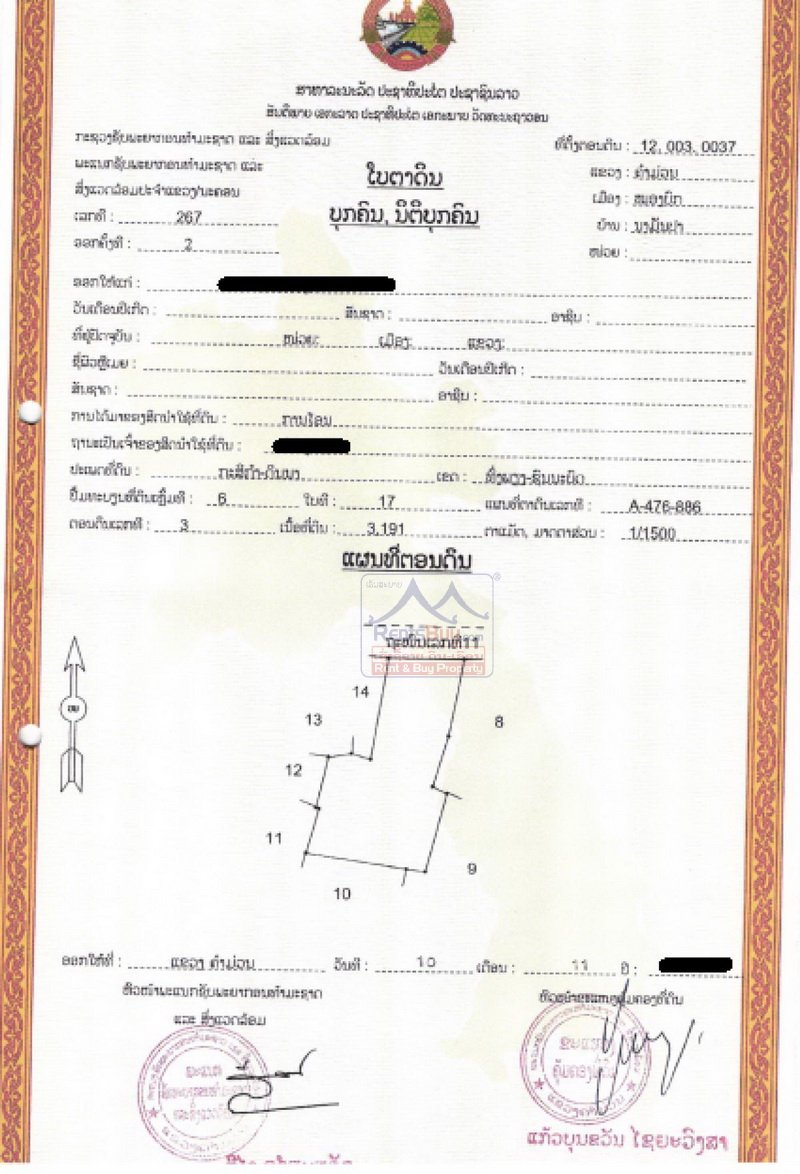 ສາທາລະນະລັດ ປະຊາທິປະໄຕ ປະຊາຊົນລາວ
ສັນຕິພາບ ເອກະລາດ ປະຊາທິປະໄຕ ເອກະພາບ ວັດທະນະຖາວອນ
ກະຊວງຊັບພະຍາກອນທຳມະຊາດ ແລະ ສິ່ງແວດລ້ອມ
ພະແນກຊັບພະຍາກອນທຳມະຊາດ ແລະ
ສິ່ງແວດລ້ອມປະຈຳແຂວງ/ນະຄອນ
ເລກທີ : 267
ອອກຄັ້ງທີ : 2
ໃບຕາດິນ
ບຸກຄົນ, ນິຕິບຸກຄົນ
ທີ່ຕັ້ງຕອນດິນ : 12, 003, 0037
ແຂວງ : ຄຳມ່ວນ
ເມືອງ : ໜອງບົກ
ບ້ານ :
ໜ່ວຍ :
ອອກໃຫ້ແກ່ :
ວັນເດືອນປີເກີດ : ສັນຊາດ : ອາຊີບ :
ທີ່ຢູ່ປັດຈຸບັນ : ໜ່ວຍ: ເມືອງ: ແຂວງ:
ຊື່ຜົວຫຼືເມຍ : ວັນເດືອນປີເກີດ :
ສັນຊາດ : ອາຊີບ :
ການໄດ້ມາຂອງສິດນຳໃຊ້ທີ່ດິນ : ການໂອນ
ຖານະເປັນເຈົ້າຂອງສິດນຳໃຊ້ທີ່ດິນ :
ປະເພດທີ່ດິນ : ກະສິກຳ-ດິນນາ ເຂດ : ທົ່ງພຽງ-ຊົນນະບົດ
ປຶ້ມທະບຽນທີ່ດິນເຫຼັ້ມທີ : 6 ໃບທີ : 17 ແຜນທີ່ຕາດິນເລກທີ : A-476-886
ຕອນດິນເລກທີ : 3 ເນື້ອທີ່ດິນ : 3,191 ຕາແມັດ, ມາດຕາສ່ວນ : 1/1500
ແຜນທີ່ຕອນດິນ
RentsBuy.com
ຖະໜົນເລກທີ11
Rent & Buy Property
14
13
8
ໜ
12
11
9
10
ອອກໃຫ້ທີ່ : ແຂວງ ຄຳມ່ວນ ວັນທີ : 10 ເດືອນ : 11 ປີ :
ຫົວໜ້າພະແນກຊັບພະຍາກອນທຳມະຊາດ
ແລະ ສິ່ງແວດລ້ອມ
ຫົວໜ້າຂະແໜງຄຸ້ມຄອງທີ່ດິນ
ແກ້ວບຸນຂວັນ ໄຊຍະວົງສາ